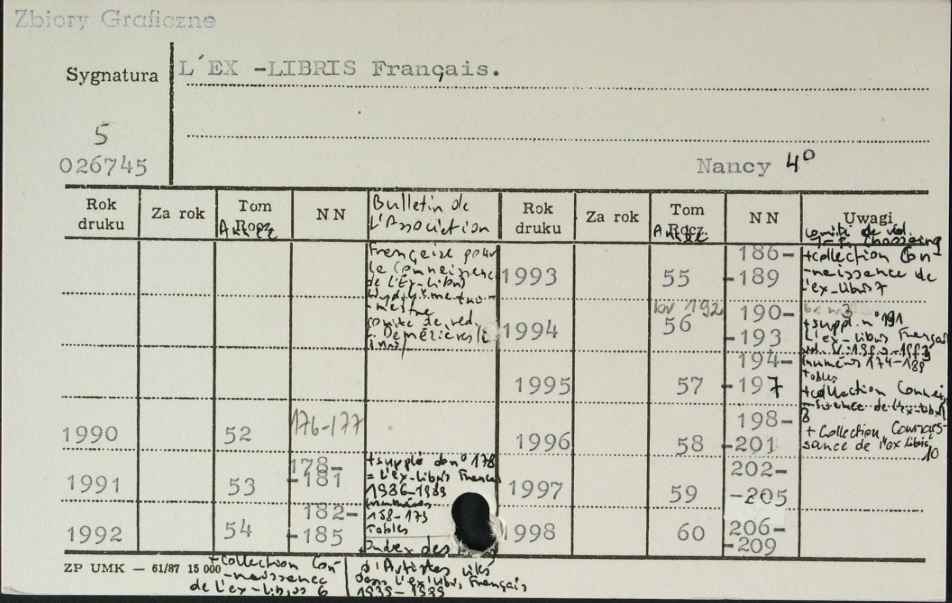 Zbiory Graficzne
Sygnatura L'EX -LIBRIS Français.
5
026745
Nancy 4°
Rok druku Za rok Tom Rocz. NN Bulletin de L'Association Rok druku Za rok Tom Rocz. NN Uwagi
Comité de
Française pour
de L'Ex-Libris
comité de red.
1993 55 186-189 +collection Con-
-naissance de
l'ex-libris 7
1994 56 190-193
+suppl. n° 191
L'ex-libris Français
numéros 174-189
Tables
1995 57 194-197 +collection
1990 52 176-177
1996 58 198-201 + Collection
sance de l'ex libris
10
1991 53 178-181 +supplé do n° 178
= L'ex-libris Français
1986-1989
numéros
158-173
Tables
1997 59 202-205
1992 54 182-185
Index des
1998 60 206-209
ZP UMK — 61/87 15 000
+ Collection Con-
-naissance
de L'ex-libris 6
d'Artistes cités
dans L'ex libris Français